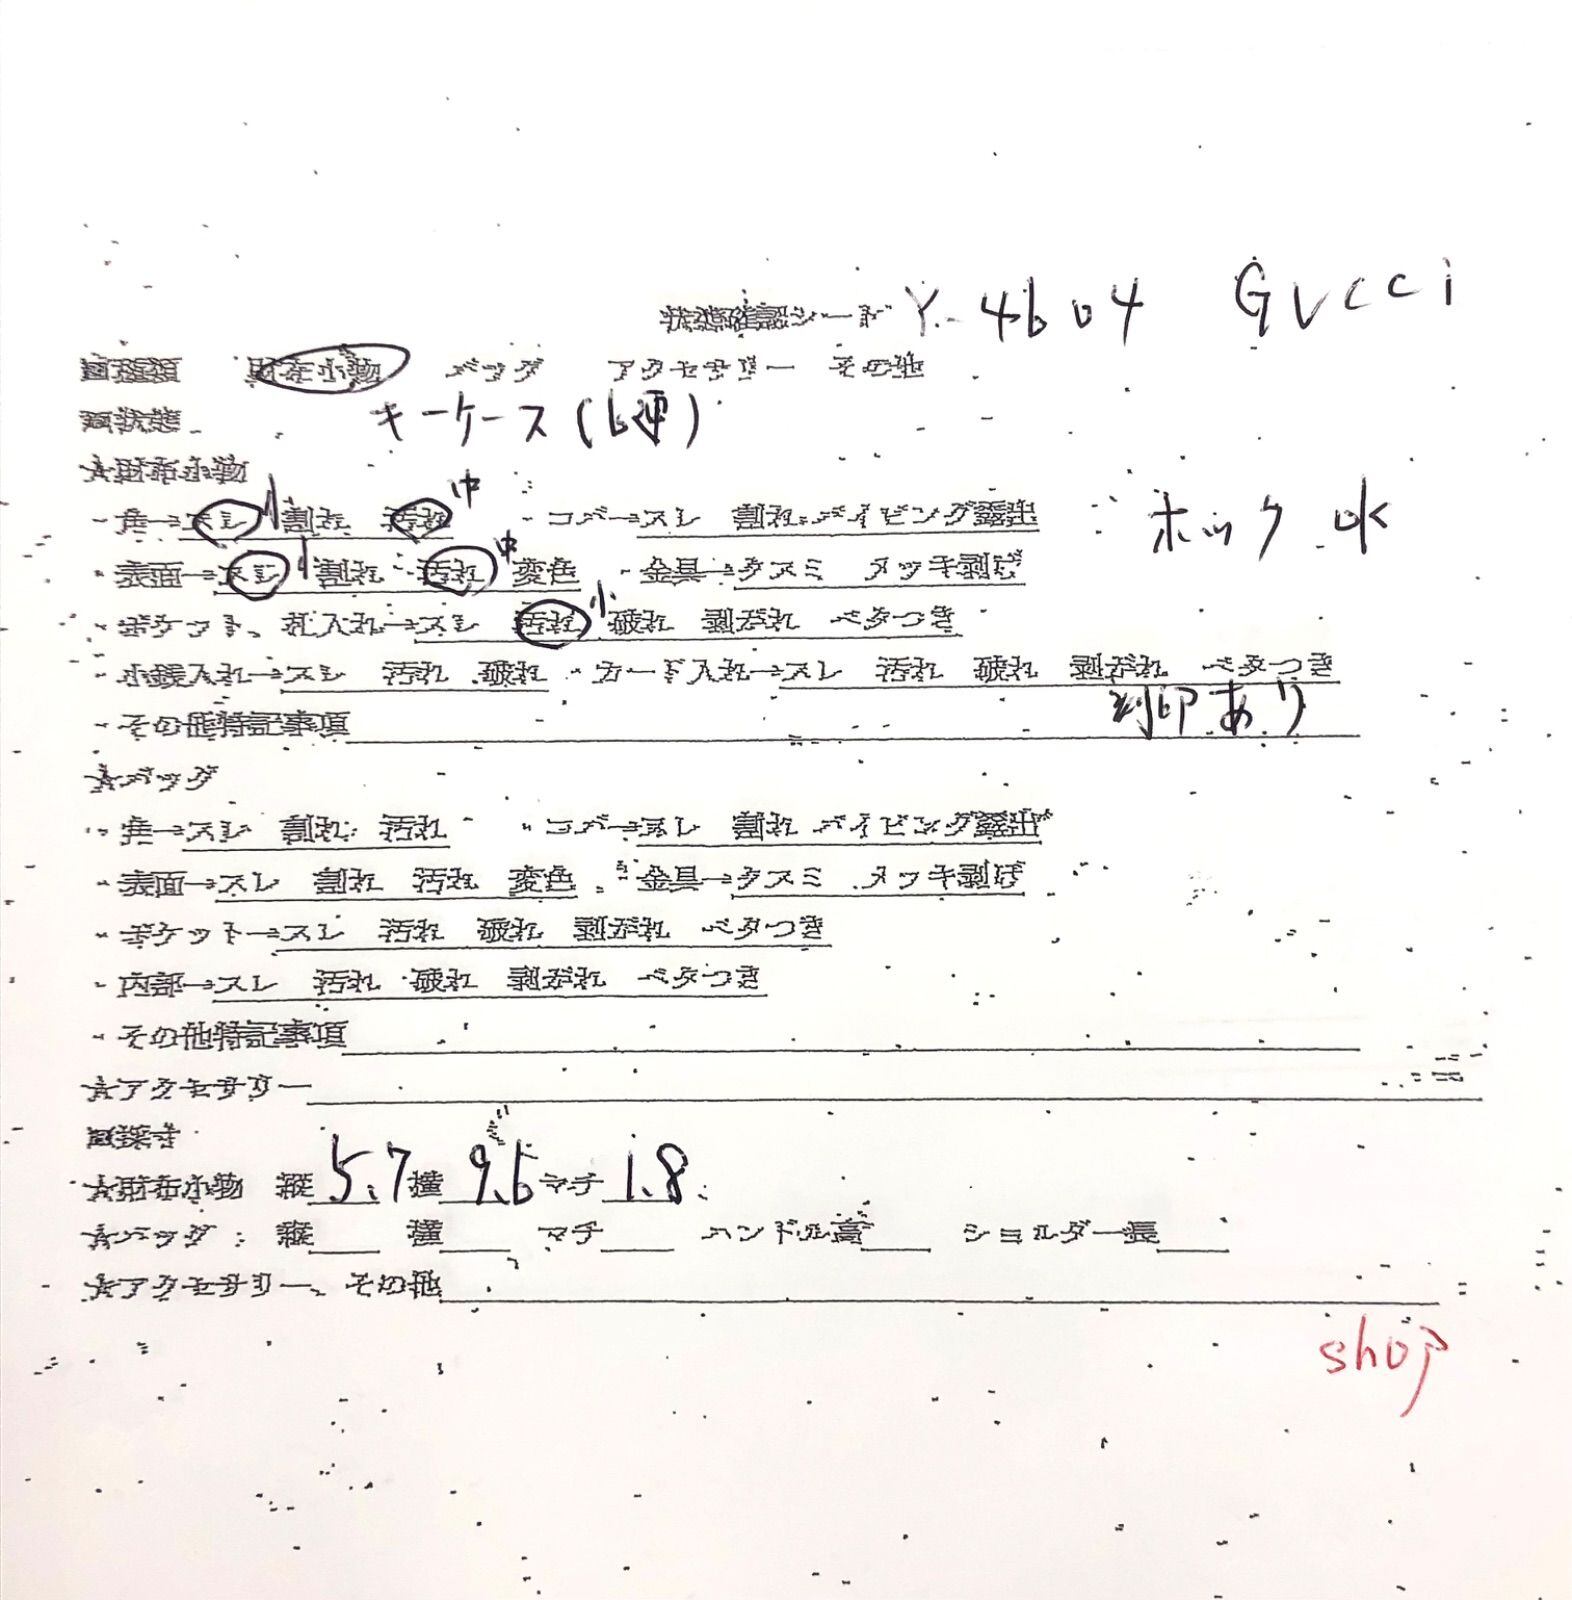 状態確認シート Y-4604 GUCCI
□種類 財布小物 バッグ アクセサリー その他
□状態 キーケース(6連)
☆財布小物
・角→スレ 小 割れ 汚れ 中 ・コバ→スレ 割れ パイピング露出 ホック ok
・表面→スレ 小 割れ 汚れ 中 変色 ・金具→クスミ メッキ剥げ
・ポケット、札入れ→スレ 汚れ 小 破れ 剥がれ ベタつき
・小銭入れ→スレ 汚れ 破れ ・カード入れ→スレ 汚れ 破れ 剥がれ ベタつき
・その他特記事項 刻印あり
☆バッグ
・角→スレ 割れ 汚れ ・コバ→スレ 割れ パイピング露出
・表面→スレ 割れ 汚れ 変色 ・金具→クスミ メッキ剥げ
・ポケット→スレ 汚れ 破れ 剥がれ ベタつき
・内部→スレ 汚れ 破れ 剥がれ ベタつき
・その他特記事項
☆アクセサリー
□採寸
☆財布小物 縦 5.7 横 9.5 マチ 1.8
☆バッグ: 縦 横 マチ ハンドル高 ショルダー長
☆アクセサリー、その他
shop